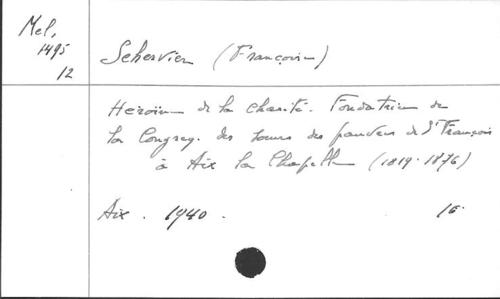 Mel,
1495
12
Schervier (Françoise)
Héroïne de la charité. Fondatrice de
la Congrég. des soeurs des pauvres de St François
à Aix la Chapelle (1819-1876)
Aix. 1940. 16°